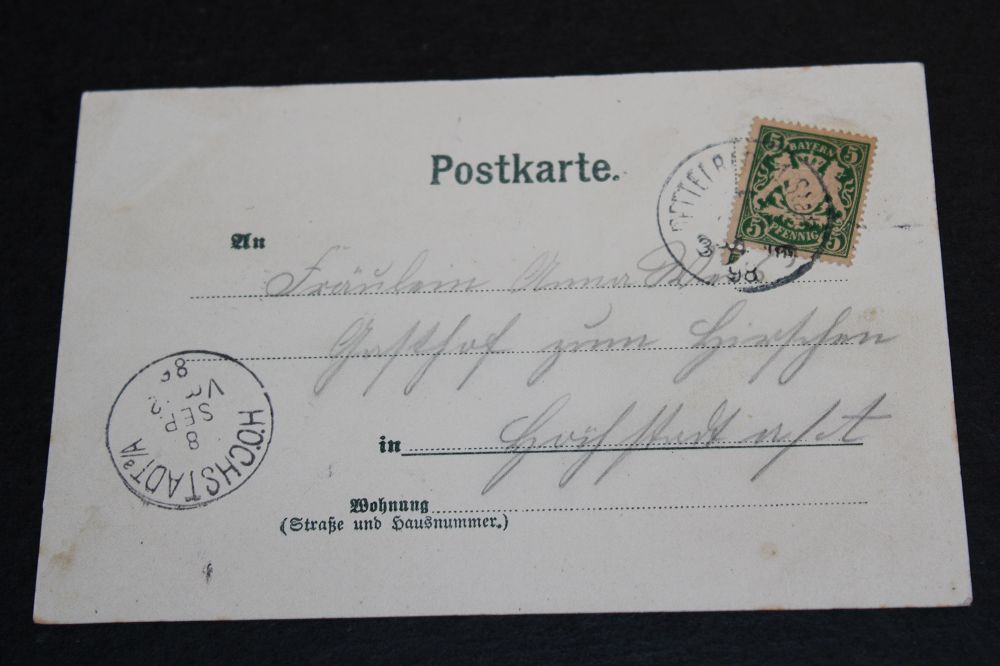 Postkarte.
5 BAYERN 5
5 PFENNIG 5
98
An Fräulein Anna
Gasthof zum Hirschen
in Höchstadt a/A
Wohnung
(Straße und Hausnummer.)
HÖCHSTADT a/A
8
SEP.
98